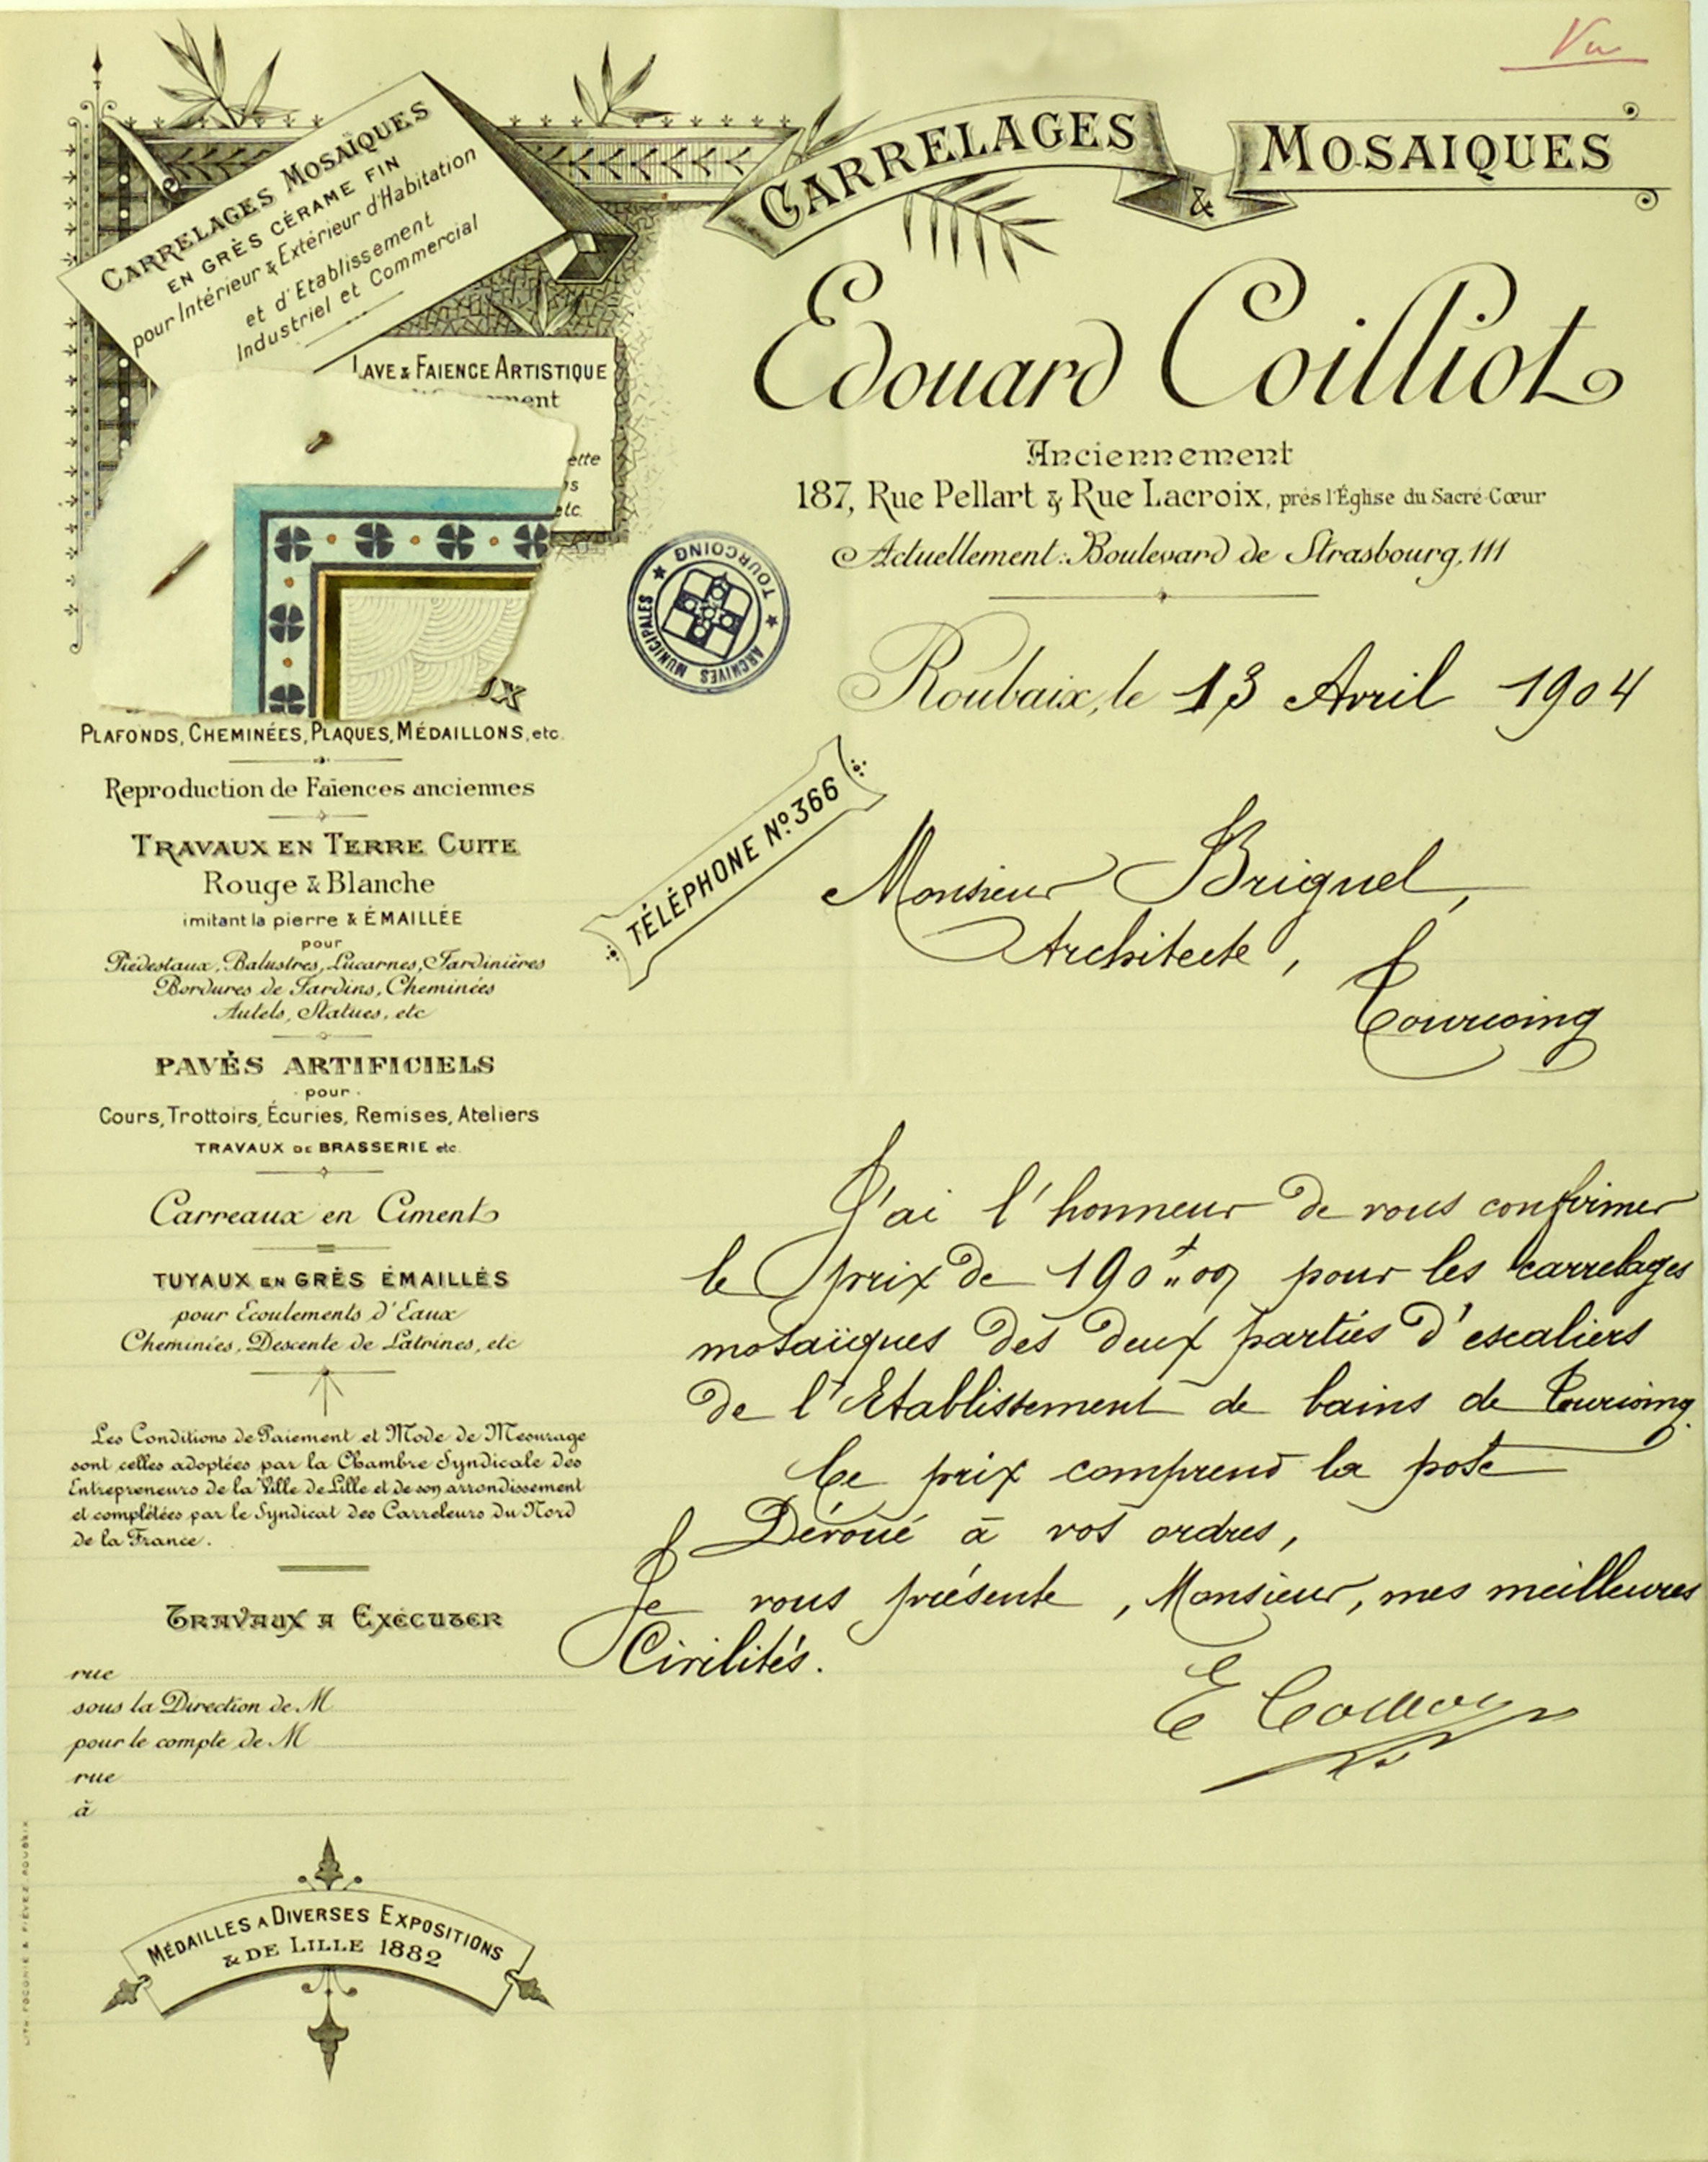 Vu
CARRELAGES & MOSAIQUES
CARRELAGES MOSAÏQUES
EN GRÈS CÉRAME FIN
pour Intérieur & Extérieur d'Habitation
et d'Etablissement
Industriel et Commercial
LAVE & FAIENCE ARTISTIQUE
ette
etc.
PLAFONDS, CHEMINÉES, PLAQUES, MÉDAILLONS, etc.
Reproduction de Faïences anciennes
TRAVAUX EN TERRE CUITE
Rouge & Blanche
imitant la pierre & ÉMAILLÉE
pour
Piédestaux, Balustres, Lucarnes, Jardinières
Bordures de Jardins, Cheminées
Autels, Statues, etc
PAVÉS ARTIFICIELS
pour
Cours, Trottoirs, Écuries, Remises, Ateliers
TRAVAUX DE BRASSERIE etc.
Carreaux en Ciment
TUYAUX EN GRÈS ÉMAILLÉS
pour Ecoulements d'Eaux
Cheminées, Descente de Latrines, etc
Les Conditions de Paiement et Mode de Mesurage
sont celles adoptées par la Chambre Syndicale des
Entrepreneurs de la Ville de Lille et de son arrondissement
et complétées par le Syndicat des Carreleurs du Nord
de la France.
TRAVAUX A EXÉCUTER
rue
sous la Direction de M
pour le compte de M
rue
à
MÉDAILLES A DIVERSES EXPOSITIONS
& DE LILLE 1882
Edouard Coilliot
Anciennement
187, Rue Pellart & Rue Lacroix, près l'Église du Sacré-Cœur
Actuellement: Boulevard de Strasbourg, 111
ARCHIVES MUNICIPALES ★ TOURCOING ★
Roubaix, le 13 Avril 1904
TÉLÉPHONE No. 366
Monsieur Briquel,
Architecte,
Tourcoing
J'ai l'honneur de vous confirmer
le prix de 190 f,, 00 pour les carrelages
mosaïques des deux parties d'escaliers
de l'Etablissement de bains de Tourcoing.
Ce prix comprend la pose
Dévoué à vos ordres,
Je vous présente, Monsieur, mes meilleures
Civilités.
E Coilliot